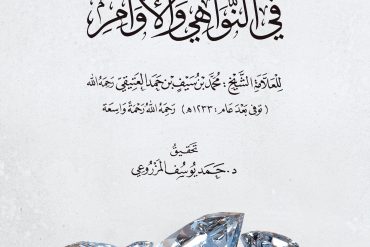 في النَّوَاهِي وَالأَوَامِر
لِلعَلَّامَةِ الشَّيْخِ : مُحَمَّد بْن سَيْف بْن حَمَد العَتِيقِي رَحِمَهُ الله
(تُوفِّي بَعْدَ عَام : ١٢٣٣هـ) رَحِمَهُ اللهُ رَحْمَةً وَاسِعَة
تَحقِيقُ
د. حَمَد يُوسُف المَزْرُوعِي